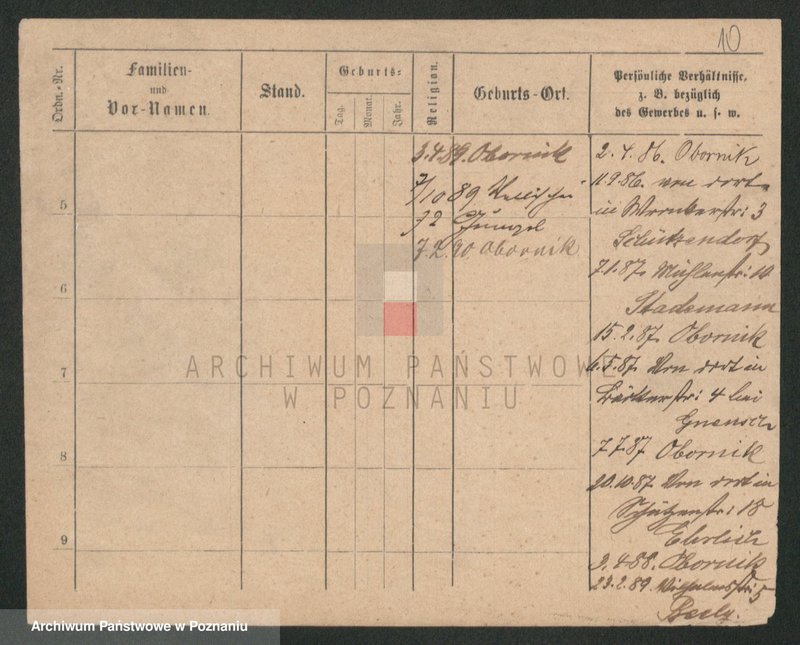 10
Ordn.-Nr.
Familien-
und
Vor-Namen.
Stand.
Geburts-
Tag.
Monat.
Jahr.
Religion.
Geburts-Ort.
Persönliche Verhältnisse,
z. B. bezüglich
des Gewerbes u. s. w.
3.4.89. Obornik
7/10 89
72
7.2.90 Obornik
5
6
7
8
9
2.4.86. Obornik
11.9.86. von dort
in Wronkerstr: 3
Schützendorf
7.1.87. Mühlenstr: 10
Stademann
15.2.87. Obornik
6.5.87. Von dort in
Bäckerstr: 4 bei
7.7.87 Obornik
20.10.87. Von dort in
Schützenstr: 18
Ehrlich
3.4.88. Obornik
23.2.89. Wilhelmsstr: 5
ARCHIWUM PAŃSTWOWE
W POZNANIU
Archiwum Państwowe w Poznaniu